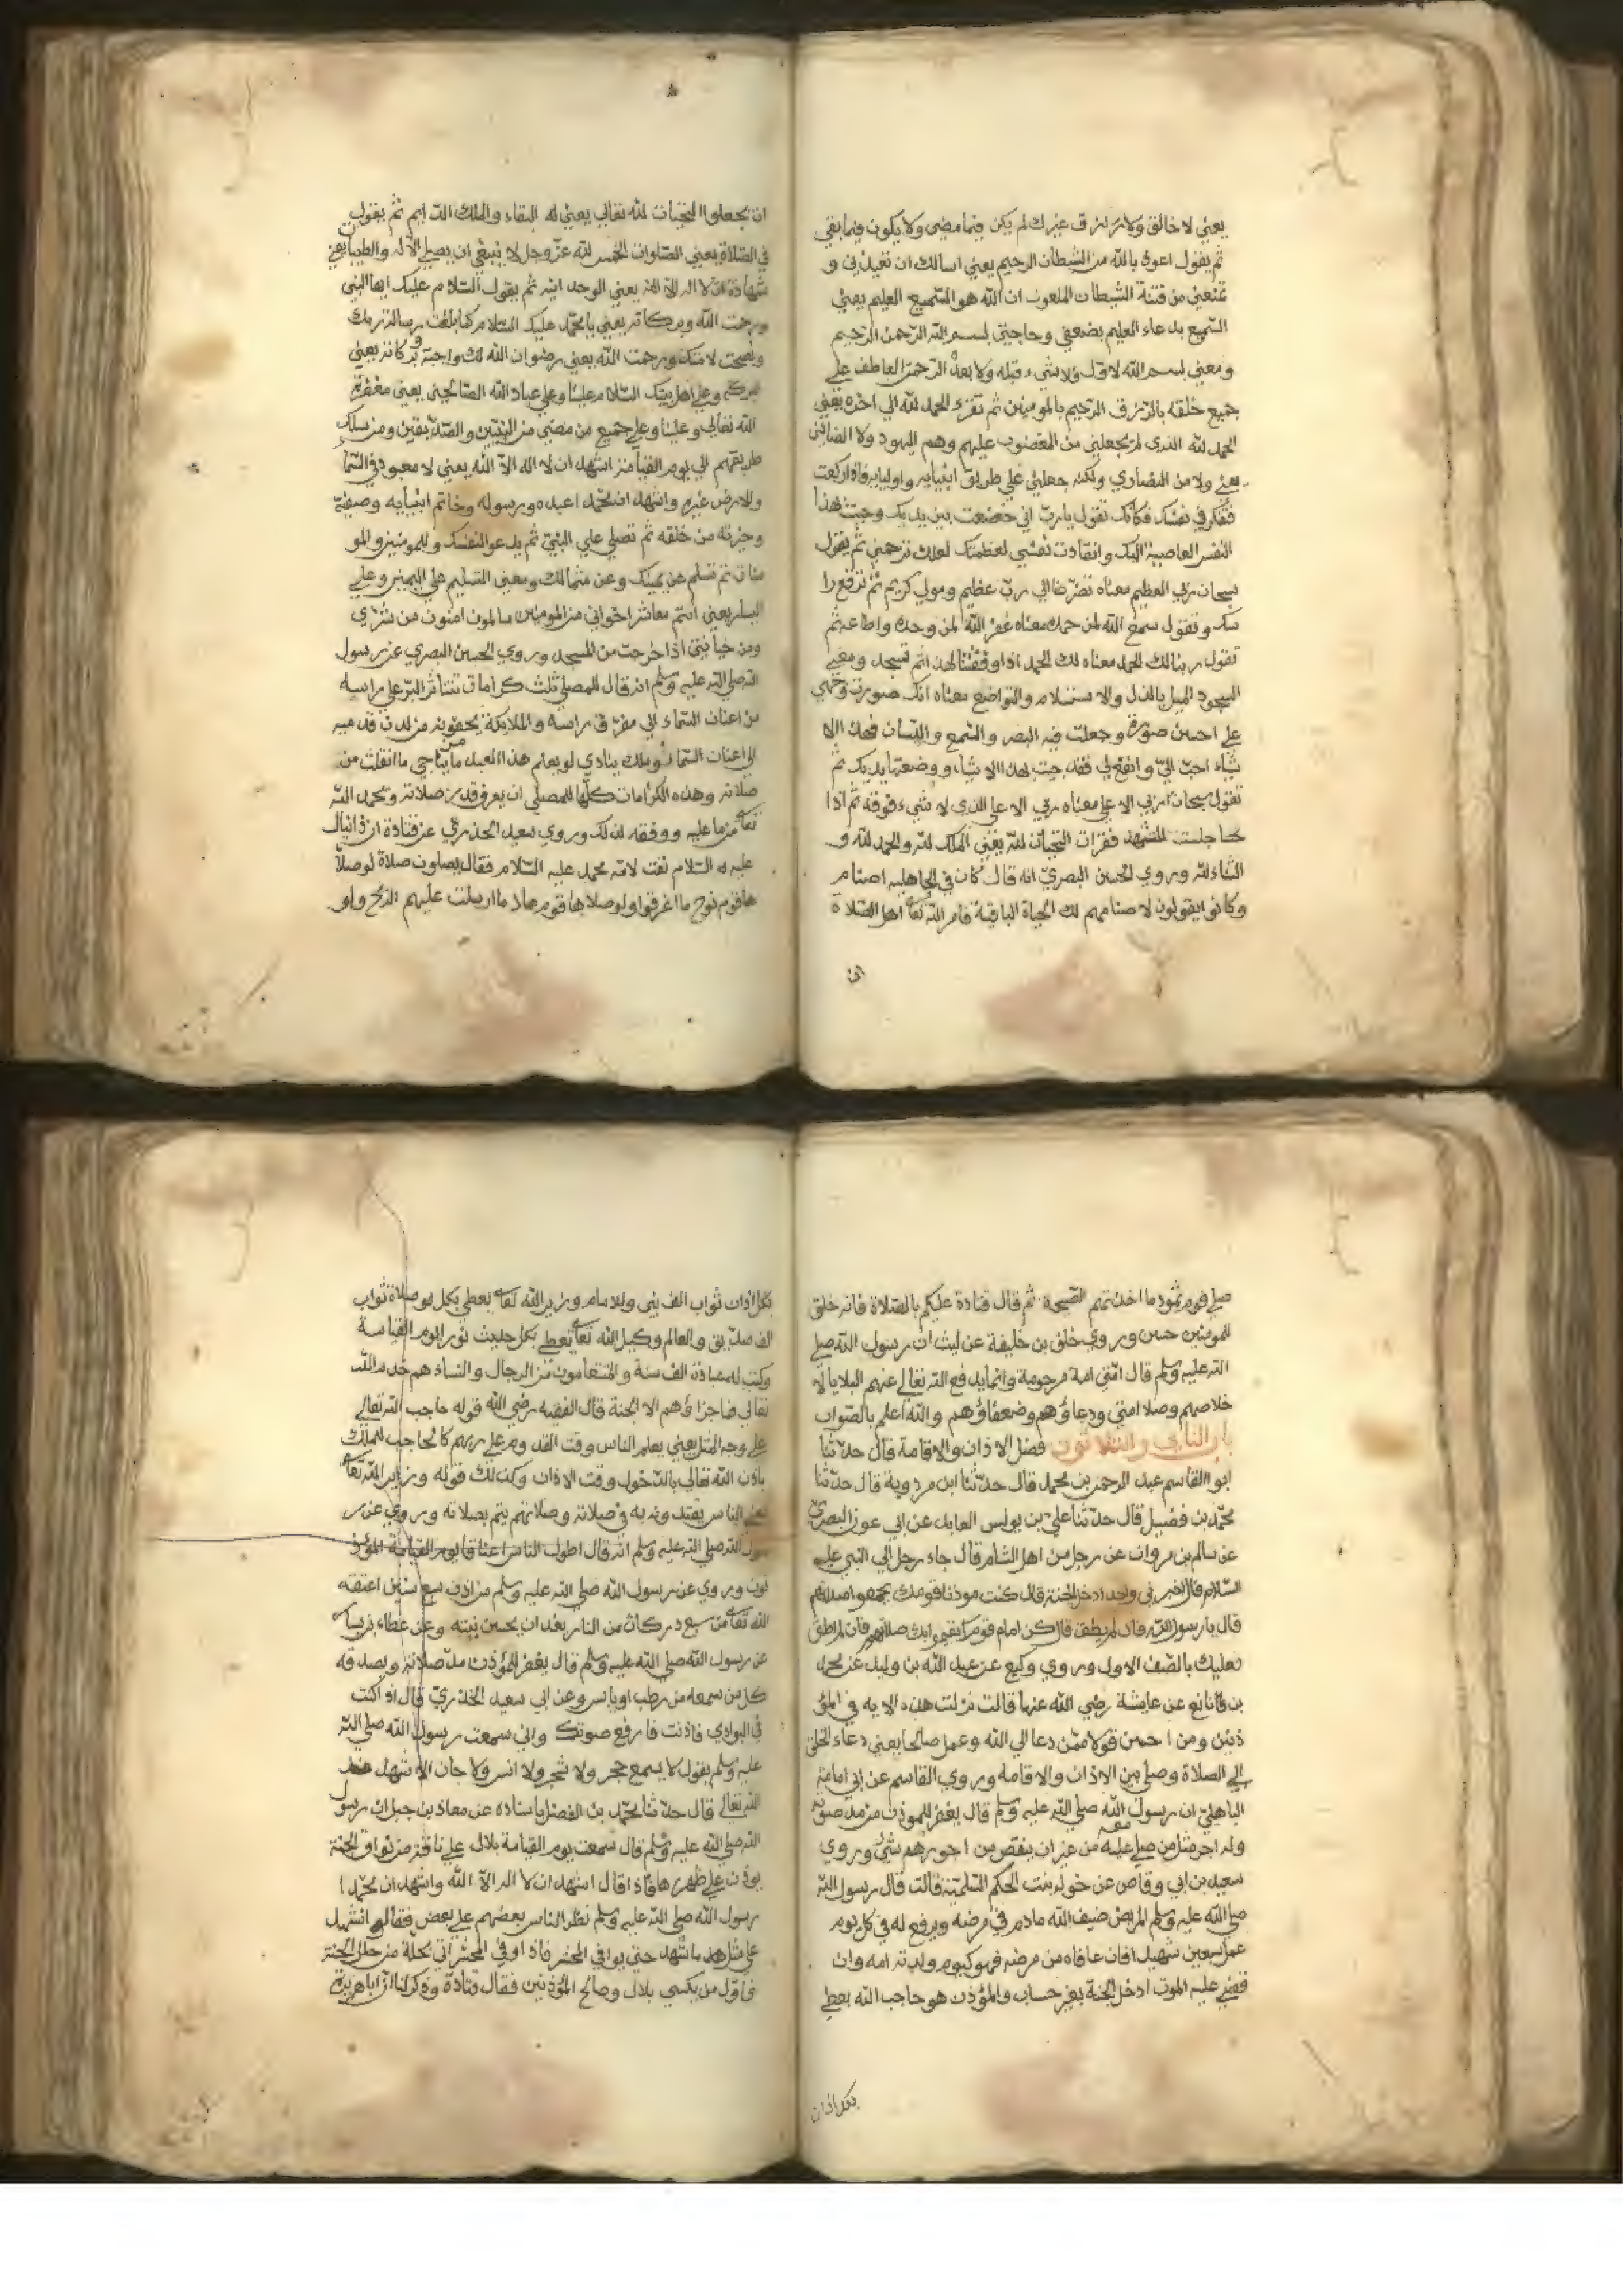 يعني لا خالق ولا رازق غيرك لم يكن فيما مضى ولا يكون فيما بقي
ثم يقول اعوذ بالله من الشيطان الرجيم يعني اسالك ان تعيذني و
تمنعني من فتنة الشيطان الملعون ان الله هو السميع العليم يعني
السميع بدعاء العليم بضعفي وحاجتي بسم الله الرحمن الرحيم
ومعني بسم الله لاول ولا شيء قبله ولا بعده الرحمن العاطف علي
جميع خلقه بالرزق الرحيم بالمومنين ثم تقرء الحمد لله الي اخره يعني
الحمد لله الذي لم يجعلني من المغضوب عليهم وهم اليهود ولا الضالين
يعني ولا من النصاري ولكنه جعلني علي طريق انبيايه واوليايه فاذا ركعت
فتفكر في نفسك فكانك تقول يا رب اني خضعت بين يديك وجيت هذا
النفس العاصية اليك وانقادت نفسي لعظمتك لعلك ترحمني ثم يقول
سبحان ربي العظيم معناه تضرعا الي رب عظيم ومولي كريم ثم ترفع را
سك وتقول سمع الله لمن حمده معناه غفر الله لمن وحده واطاعه ثم
تقول ربنا لك الحمد معناه لك الحمد اذ اوفقتنا لهذا ثم تسجد ومعني
السجود الميل بالذل والاستسلام والتواضع معناه انك صورت وجهي
علي احسن صورة وجعلت فيه البصر والسمع واللسان فهذه الا
شياء احب الي وانفع لي فقد جيت بهذا الاشياء ووضعتها يديك ثم
تقول سبحان ربي الاعلي معناه ربي الاعلا الذي لا شيء فوقه ثم اذا
جلست للتشهد فقرات التحيات لله يعني الملك لله والحمد لله و
الثناء لله وروي الحسن البصري انه قال كان في الجاهلية اصنام
وكانوا يقولون لاصنامهم لك الحياة الباقية فامر الله تعا اهل الصلاة
ان
ان يجعلوا التحيات لله تعالي يعني له البقاء والملك الدايم ثم يقول
في الصلاة يعني الصلوات الخمس لله عز وجل لا ينبغي ان يصلي الا له والطيبات يعني
شهادة ان لا اله الا الله يعني الوحدانية ثم يقول السلام عليك ايها النبي
ورحمت الله وبركاته يعني يا محمد عليك السلام كما بلغت رسالة ربك
ونصحت لامتك ورحمت الله يعني رضوان الله لك واجبة وبركاته يعني
بركة وعلي اهل بيتك السلام علينا وعلي عباد الله الصالحين يعني مغفرة
الله تعالي وعلينا وعلي جميع من مضي من النبيين والصديقين ومن سلك
طريقهم الي يوم القيامة اشهد ان لا اله الا الله يعني لا معبود في السما
والارض غيره واشهد ان محمدا عبده ورسوله وخاتم انبيايه وصفيه
وخيرته من خلقه ثم تصلي علي النبي ثم يدعو لنفسك وللمومنين والمو
منات ثم تسلم عن يمينك وعن شمالك ومعني التسليم علي اليمين وعلي
اليسار يعني انتم معاشر اخواني من المومنين سالمون امنون من شري
ومن خيانتي اذا خرجت من المسجد وروي الحسن البصري عن رسول
الله صلي الله عليه وسلم انه قال للمصلي ثلث كرامات تتناثر البر علي راسه
من اعنان السماء الي مفرق راسه والملايكة يحفونه من لدن قدميه
الي اعنان السماء وملك ينادي لو يعلم هذا العبد من يناجي ما انفلت من
صلاته وهذه الكرامات كلها للمصلي ان يعرف قدر صلاته ويحمد الله
تعا من ما عليه ووفقه لذلك وروي سعيد الخذري عن قتادة ان دانيال
عليه السلام نعت لامة محمد عليه السلام فقال يصلون صلاة لوصلا
ها قوم نوح ما اغرقوا ولوصلاها قوم عاد ما ارسلت عليهم الريح ولو
صلي قوم ثمود ما اخذتهم الصيحة ثم قال قتادة عليكم بالصلاة فانه خلق
للمومنين حسن وروي خلف بن خليفة عن ليث ان رسول الله صلي
الله عليه وسلم قال امتي امة مرحومة وانما يدفع الله تعالي عنهم البلايا لا
خلاصهم وصلا امتي ودعاؤهم وضعفاؤهم والله اعلم بالصواب
باب الثاني والثلاثون فضل الاذان والاقامة قال حدثنا
ابو القاسم عبد الرحمن بن محمد قال حدثنا ابن مردوية قال حدثنا
محمد بن فضيل قال حدثنا علي بن يونس العابد عن ابي عون البصري
عن سالم بن مروان عن رجل من اهل الشام قال جاء رجل الي النبي عليه
السلام قال اخبرني واحد ادخل الجنة قال كنت موذنا قومك يجمعوا صلاتهم
قال يا رسول الله فان لم يطق قال كن امام قومك يقيموا بك صلاتهم قال فان لم اطق
فعليك بالصف الاول وروي وكيع عن عبد الله بن وليد عن محمد
بن نافع عن عايشة رضي الله عنها قالت نزلت هذه الاية في المؤ
ذنين ومن احسن قولا ممن دعا الي الله وعمل صالحا يعني دعاء الخلق
الي الصلاة وصلي بين الاذان والاقامة وروي القاسم عن ابي امامة
الباهلي ان رسول الله صلي الله عليه وسلم قال يغفر للموذن من مد صوته
وله اجر مثل من صلي معه من غير ان ينقص من اجورهم شيء وروي
سعيد بن ابي وقاص عن خوله بنت الحكم السلمية قالت قال رسول الله
صلي الله عليه وسلم المريض ضيف الله مادام في مرضه ويرفع له في كل يوم
عمل سبعين شهيدا فان عافاه من مرضه فهو كيوم ولدته امه وان
قضي عليه الموت ادخل الجنة بغير حساب والمؤذن هو حاجب الله يعطي
بكل اذان
بكل اذان ثواب الف نبي والامام وزير الله تعا يعطي بكل صلاة ثواب
الف صديق والعالم وكيل الله تعا يعطي بكل حديث نورا يوم القيامة
وكتب له عبادة الف سنة والمتعلمون من الرجال والنساء هم خدم الله
تعالي فما جزاؤهم الا الجنة قال الفقيه رضي الله قوله حاجب الله تعالي
علي وجه المثل يعني يعلم الناس وقت القدوم علي ربهم كالحاجب للملك
باذن الله تعالي بالدخول وقت الاذان وكذلك قوله وزير الله تعا
يعني الناس يقتدون به في صلاته وصلاتهم يتم بصلاته وروي عن ر
سول الله صلي الله عليه وسلم انه قال اطول الناس اعناقا يوم القيامة المؤذ
نون وروي عن رسول الله صلي الله عليه وسلم من اذن سبع سنين اعتقه
الله تعا من سبع دركات من النار بعد ان يحسن نيته وعن عطاء بن يسار
عن رسول الله صلي الله عليه وسلم قال يغفر للمؤذن مد صلاته ويصدقه
كل من سمعه من رطب او يابس وعن ابي سعيد الخذري قال اذا كنت
في البوادي فاذنت فارفع صوتك واني سمعت رسول الله صلي الله
عليه وسلم يقول لا يسمع حجر ولا شجر ولا انس ولا جان الا شهد عند
الله تعالي قال حدثنا محمد بن الفضل باسناده عن معاذ بن جبل ان رسول
الله صلي الله عليه وسلم قال سمعت يوم القيامة بلال علي ناقة من نواق الجنة
يوذن علي ظهرها فاذا قال اشهد ان لا اله الا الله واشهد ان محمدا
رسول الله صلي الله عليه وسلم نظر الناس بعضهم علي بعض فقالوا نشهد
علي مثل هذا ما شهد حتي يوافي المحشر فاذا وفي المحشر اتي بحلة من حلل الجنة
فاول من يكسي بلال وصالح المؤذنين فقال قتادة وذكر لنا ان ابا هريرة